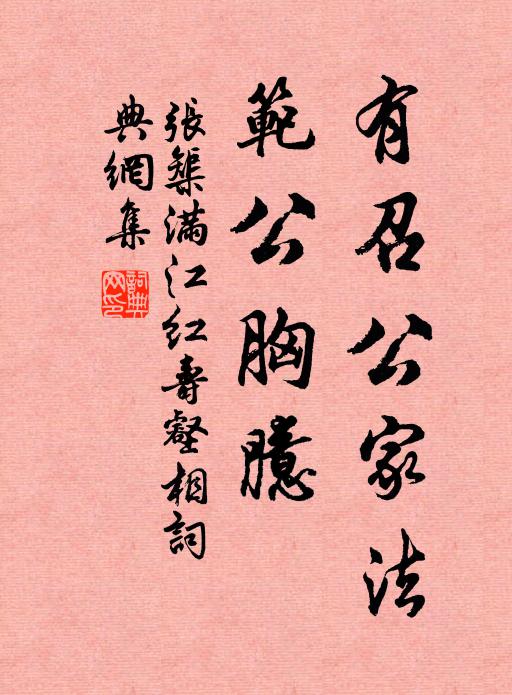 有召公家法
範公胸臆
張榘满江红壽壑相詞
典網集
詞典网印